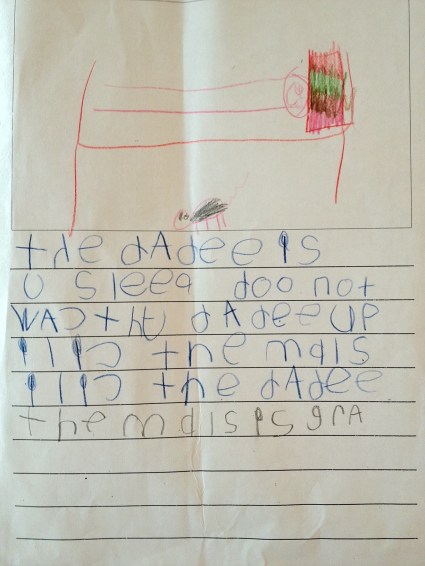 the dAdee is
U sleep doo not
WAC the dAdee UP
the mdis
the dAdee
the mdis is grA